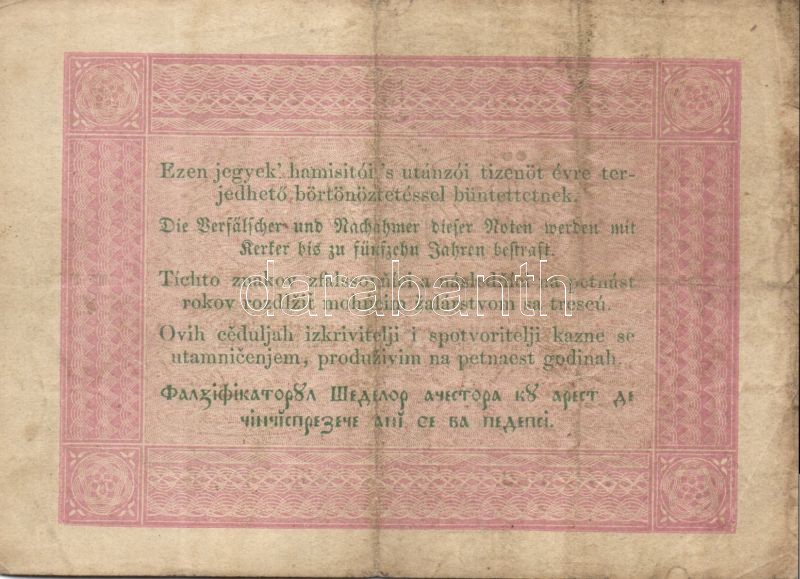 Ezen jegyek' hamisitói 's utánzói tizenöt évre ter-
jedhető börtönöztetéssel büntettetnek.
Die Verfälscher und Nachahmer dieser Noten werden mit
Kerker bis zu fünfzehn Jahren bestraft.
Tíchto znakov zfalšo a následňíci na petnást
rokov rozdĺžiť mohúcim žalárstvom sa trescú.
darabanth
Ovih cĕduljah izkrivitelji i spotvoritelji kazne se
utamničenjem, produživim na petnaest godinah.
Фалꙁіфікаторꙋл Шеделор ачестора кꙋ арест де
чінчіспреꙁече ані се ва педепсі.